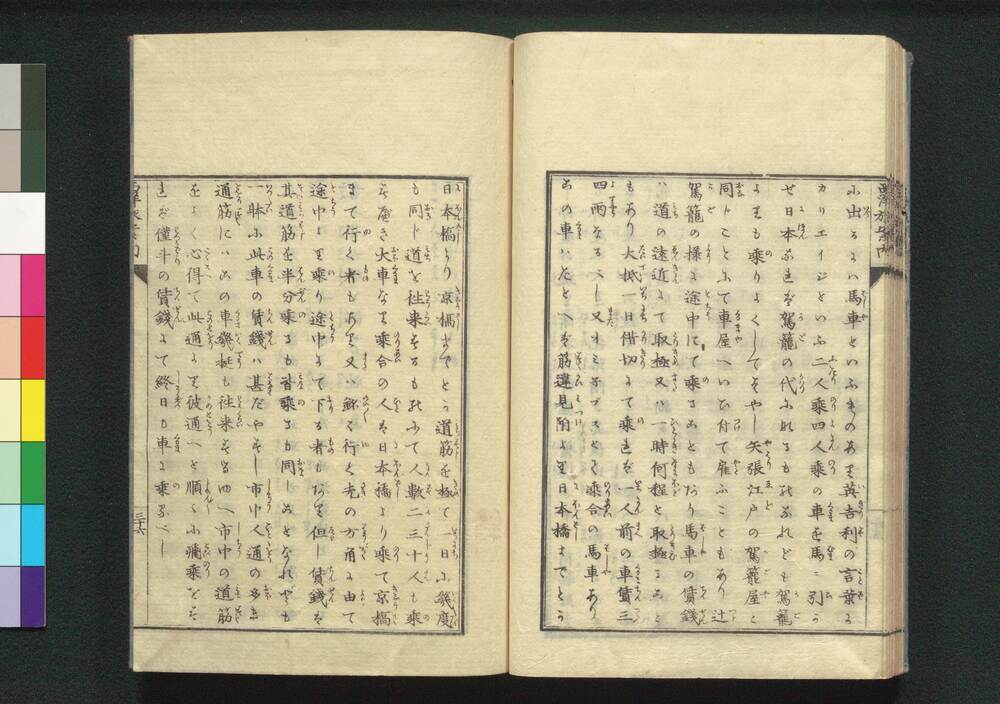 に出るには馬車といふものあり英吉利の言葉に
カリエイジといふ二人乗四人乗の車を馬に引か
せ日本なれば駕籠の代にれるものなれども駕籠
よりも乗りよくしてそや〳〵矢張江戸の駕籠屋と
同じことにて車屋へいひ付て雇ふこともあり辻
駕籠の様に途中にて乗ることもあり馬車の賃銭
ハ道の遠近にて取極又ハ一時何程と取極ること
もあり大抵一日借切にて乗れば一人前の車賃三
四両なるべし又オミニブスとて乗合の馬車あり
この車ハたとへば筋違見附より日本橋までとか
日本橋より京橋までとか道筋を極て一日に幾度
も同じ道を往来するものにて人数二三十人も乗
るべき大車なり乗合の人は日本橋より乗て京橋
まて行く者もあり又ハ遠く行く先の方角に由て
途中より乗り途中にて下る者もあり但し賃銭は
其道筋を半分乗るも皆乗るも同しことなれども
一躰に此車の賃銭ハ甚だやすし市中人通の多き
通筋にハこの車幾挺も往来する由へ市中の道筋
をよく心得て此通より彼通へと順々に痛乗をす
れば僅斗の賃銭にて終日も車に乗るべし
西洋旅案内
三十六